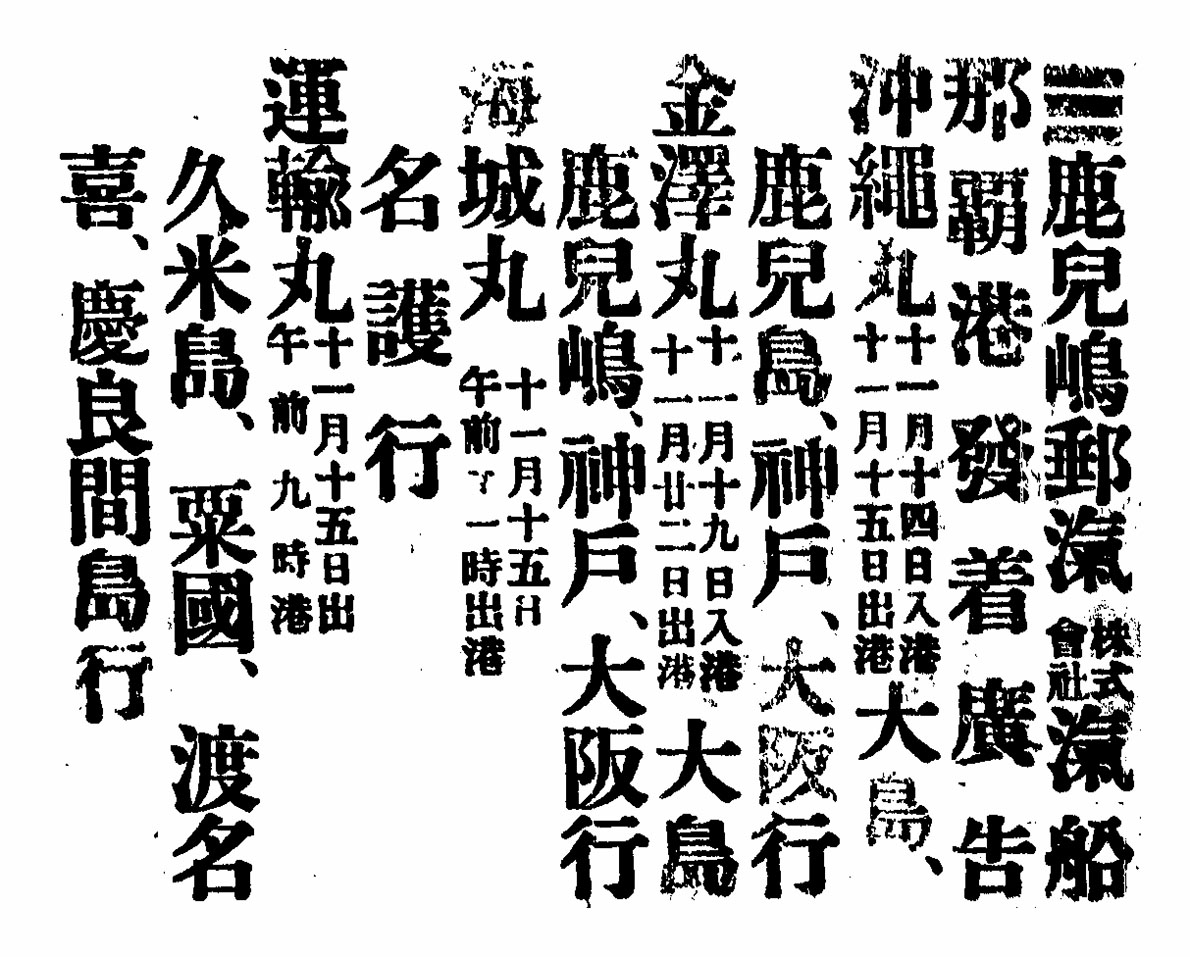 鹿兒嶋郵滊株式會社滊船
那覇港發着廣告
沖繩丸十一月十四日入港十一月十五日出港大島、
鹿兒島、神戶、大阪行
金澤丸十一月十九日入港十一月廿二日出港大島
鹿兒嶋、神戶、大阪行
海城丸十一月十五日午前十一時出港
名護行
運輸丸十一月十五日出午前九時港
久米島、粟國、渡名
喜、慶良間島行